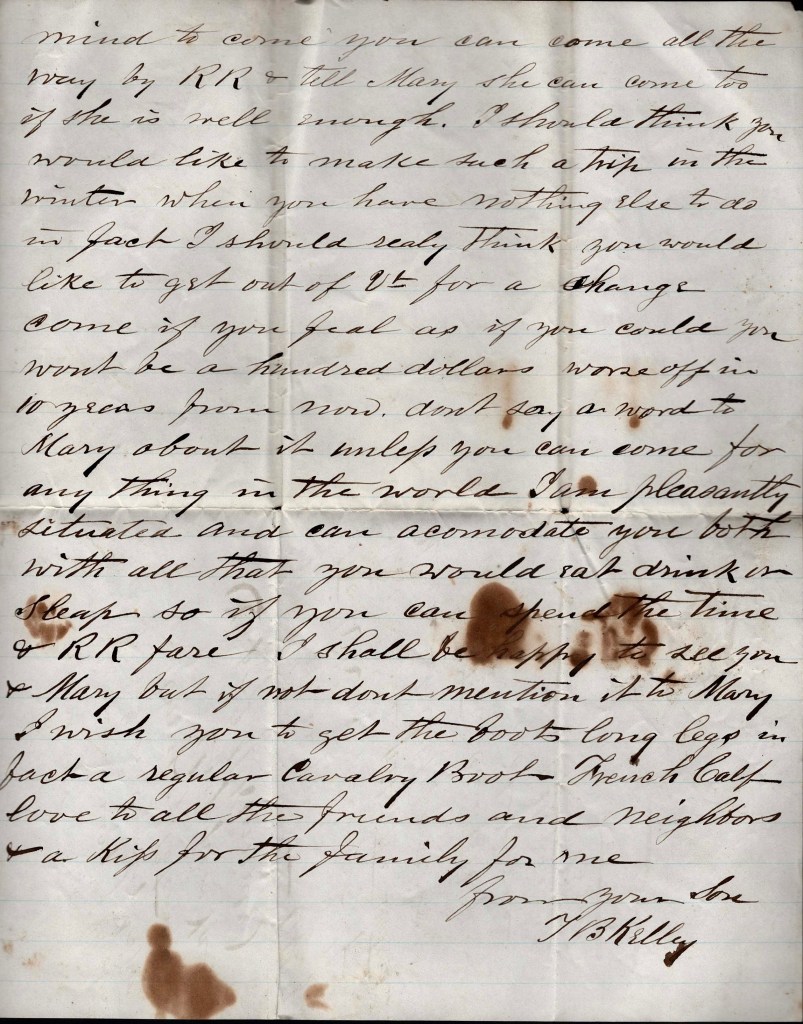 mind to come you can come all the
way by RR & tell Mary she can come too
if she is well enough. I should think you
would like to make such a trip in the
winter when you have nothing else to do
in fact I should realy think you would
like to get out of Vt for a change
come if you feal as if you could you
wont be a hundred dollars worse off in
10 years from now. dont say a word to
Mary about it unless you can come for
any thing in the world I am pleasantly
situated and can acomodate you both
with all that you would eat drink or
sleap so if you can spend the time
& RR fare I shall be happy to see you
& Mary but if not dont mention it to Mary
I wish you to get the boots long legs in
fact a regular Cavalry Boot French Calf
love to all the friends and neighbors
& a Kiss for the family for me
from your Son
T B Kelley